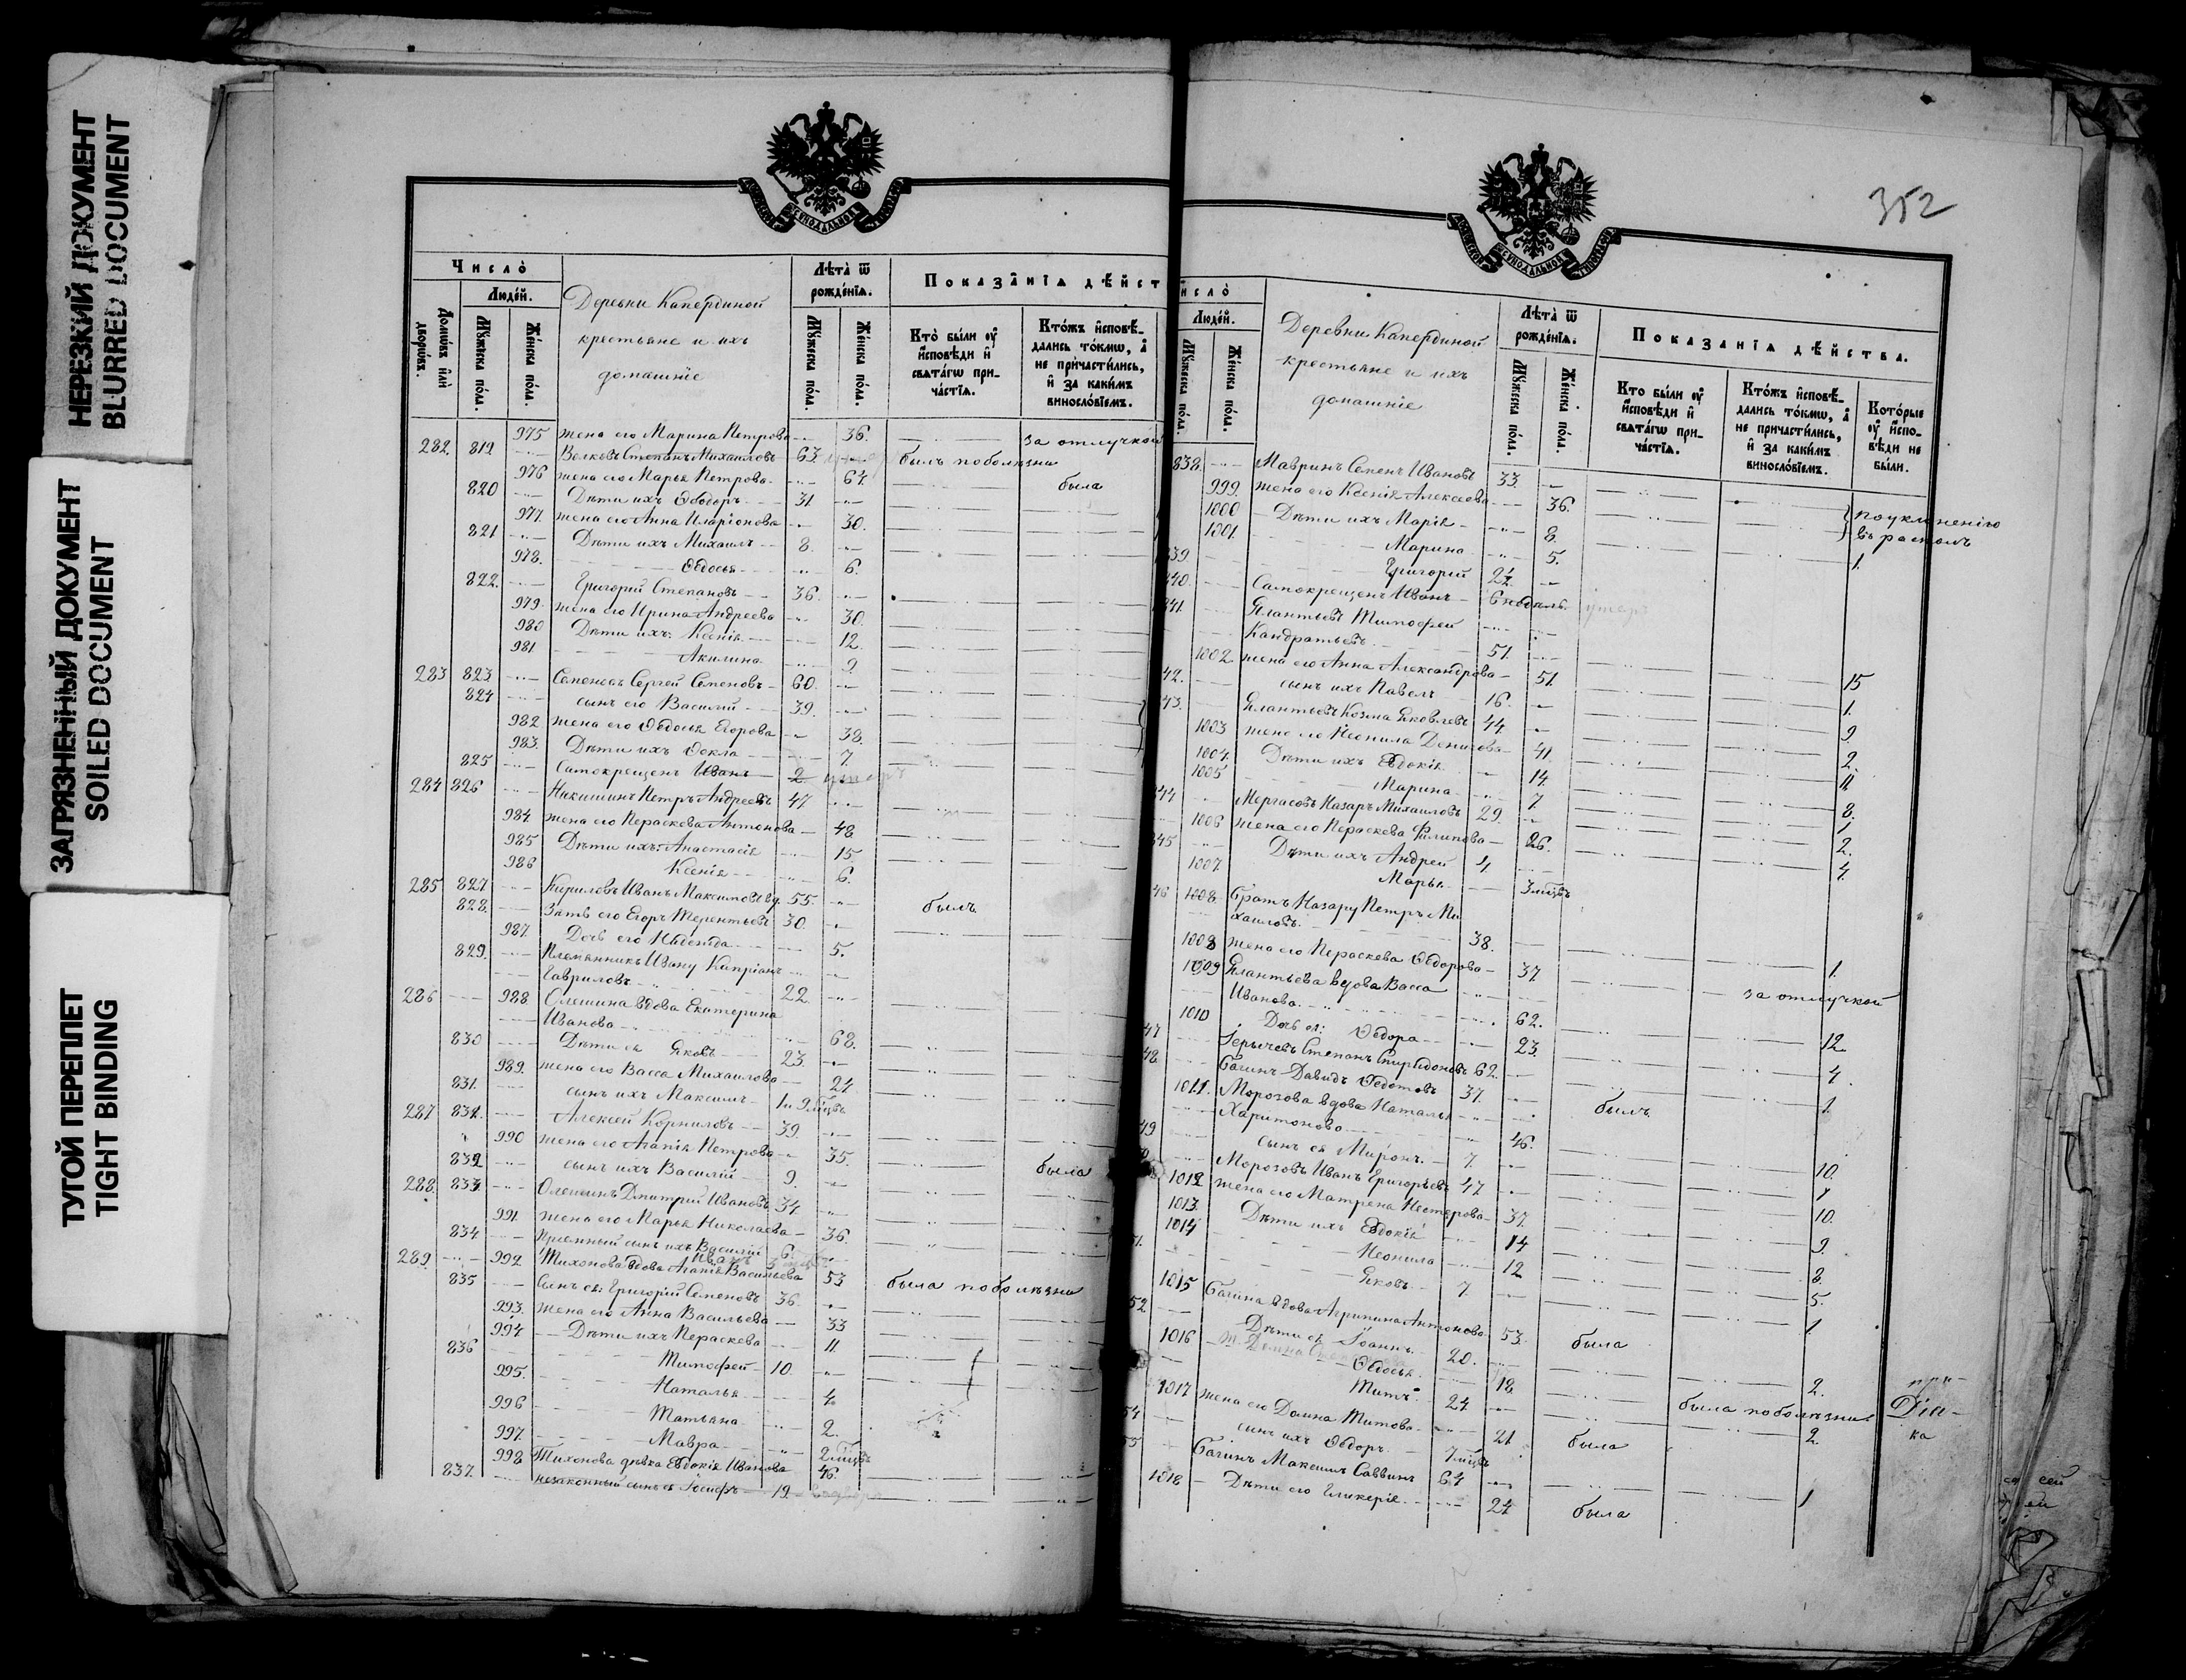 НЕРЕЗКИЙ ДОКУМЕНТ
BLURRED DOCUMENT
ЗАГРЯЗНЕННЫЙ ДОКУМЕНТ
SOILED DOCUMENT
ТУГОЙ ПЕРЕПЛЕТ
TIGHT BINDING
Число̀
Людéй.
Домѡвъ или дворѡвъ.
Мꙋжеска пола.
Женска пола.
Деревни Капердиной
крестьяне и ихъ
домашніе
Лѣта ѿ рождéнїѧ.
Мꙋжеска пола.
Женска пола.
Показанїѧ дѣйст
Кто были ꙋ исповѣди и свѧтагѡ причастїѧ.
Ктожъ исповѣдались токмѡ, а не причастились, и за какимъ винословїемъ.
975 жена его Марина Петрова 36. за отлучкой
282. 819 Волковъ Степанъ Михаиловъ 63 былъ по болѣзни
976 жена его Марья Петрова 64 была
820 Дѣти ихъ Ѳеодоръ 31
977 жена его Анна Иларіонова 30.
821 Дѣти ихъ Михаилъ 8.
978. Ѳедосья 6.
822. Григорій Степановъ 36.
979. жена его Ирина Андреева 30.
980 Дѣти ихъ: Ксенія 12.
981 Акилина 9
283 823 Семеновъ Сергей Семеновъ 60.
824 сынъ его Василій 39.
982 жена его Ѳедосья Егорова 38.
983. Дѣти ихъ Ѳекла 7
825 Самокрещенъ Иванъ 2 умеръ
284 826 Никишинъ Петръ Андреевъ 47
984 жена его Параскева Антонова 48
985 Дѣти ихъ: Анастасія 15.
986 Ксенія 6.
285 827 Кириловъ Иванъ Максимовъ вд. 55. былъ
828. Зять его Егоръ Терентьевъ 30.
987. Дочь его Надежда 5.
829. Племянникъ Ивану Кипріанъ
Гавриловъ 22.
286 988. Олешина вдова Екатерина
Иванова 68.
830 Дѣти ея Яковъ 23.
989. жена его Васса Михаилова 24
831. сынъ ихъ Максимъ 1 и 9 мѣсвъ
287 832. Алексей Корниловъ 39.
990 жена его Агапія Петрова 35.
832 сынъ ихъ Василій 9. была
288. 833 Олешинъ Дмитрій Ивановъ 34.
991. жена его Марья Николаева 36.
834 Пріемный сынъ ихъ Василій 6.
Иванъ
289 992 Тихонова вдова Агапія Васильева 53 была по болѣзни
835 Сынъ ея: Григорій Семеновъ 36.
993. жена его Анна Васильева 33
994 Дѣти ихъ Параскева 11
836 Тимофей 10.
995. Наталья 4
996 Татьяна 2.
997. Мавра 2 мѣсвъ
998 Тихонова дѣвка Евдокія Иванова 46.
837. незаконный сынъ ея Іосифъ 19
352
исло̀
Людéй.
Мꙋжеска пола.
Женска пола.
Деревни Капердиной
крестьяне и ихъ
домашніе
Лѣта ѿ рождéнїѧ.
Мꙋжеска пола.
Женска пола.
Показанїѧ дѣйства.
Кто были ꙋ исповѣди и свѧтагѡ причастїѧ.
Ктожъ исповѣдались токмѡ, а не причастились, и за какимъ винословїемъ.
Которые ꙋ исповѣди не были.
838. Мавринъ Семенъ Ивановъ 33.
999. жена его Ксенія Алексеева 36. по уклоненію
1000 Дѣти ихъ Марія 8. въ расколъ
1001. Марина 5. 1.
39 Григорій 2½
40. Самокрещенъ Иванъ 6 недѣль умеръ
41. Елантьевъ Тимофей
Кандратьевъ 51.
1002 жена его Анна Александрова 51. 15
42. сынъ ихъ Павелъ 16. 1.
43. Елантьевъ Козма Яковлевъ 44 9
1003 жена его Неонила Денисова 41 2.
1004. Дѣти ихъ Евдокія 14. 11
1005 Марина 7. 8.
44 Мергасовъ Назаръ Михаиловъ 29. 1
1006 жена его Параскева Филипова 26. 2.
45 Дѣти ихъ Андрей 4 4.
1007. Марья 3 мѣсвъ
46 1008. Братъ Назару Петръ Ми
хаиловъ 38.
1008 жена его Параскева Ѳедорова 37 1.
1009 Елантьева вдова Васса за отлучкой
Иванова. 62.
1010 Дочь ея: Ѳедора 23. 12
47 Герычевъ Степанъ Спиридоновъ 62. 4.
48. Багинъ Давидъ Ѳедотовъ 37. былъ 1.
1011. Морозова вдова Наталья
Харитонова 46.
49 сынъ ея Миронъ 7. 10.
Морозовъ Иванъ Григорьевъ 47 1
1012 жена его Матрена Нестерова 37. 10.
1013. Дѣти ихъ Евдокія 14 9.
1014 Неонила 12 8.
Яковъ 7. 5.
1015 Багина вдова Агрипина Антонова 53. была 1
52 Дѣти ея Іоаннъ 20.
1016 Ѳедосья 18 2.
Титъ 24 была по болѣзни
1017 жена его Домна Титова 21. была 2.
54 сынъ ихъ Ѳедоръ 7 мѣсвъ
55 Багинъ Максимъ Саввинъ 64
1018 Дѣти его Гликерія 24 была 1